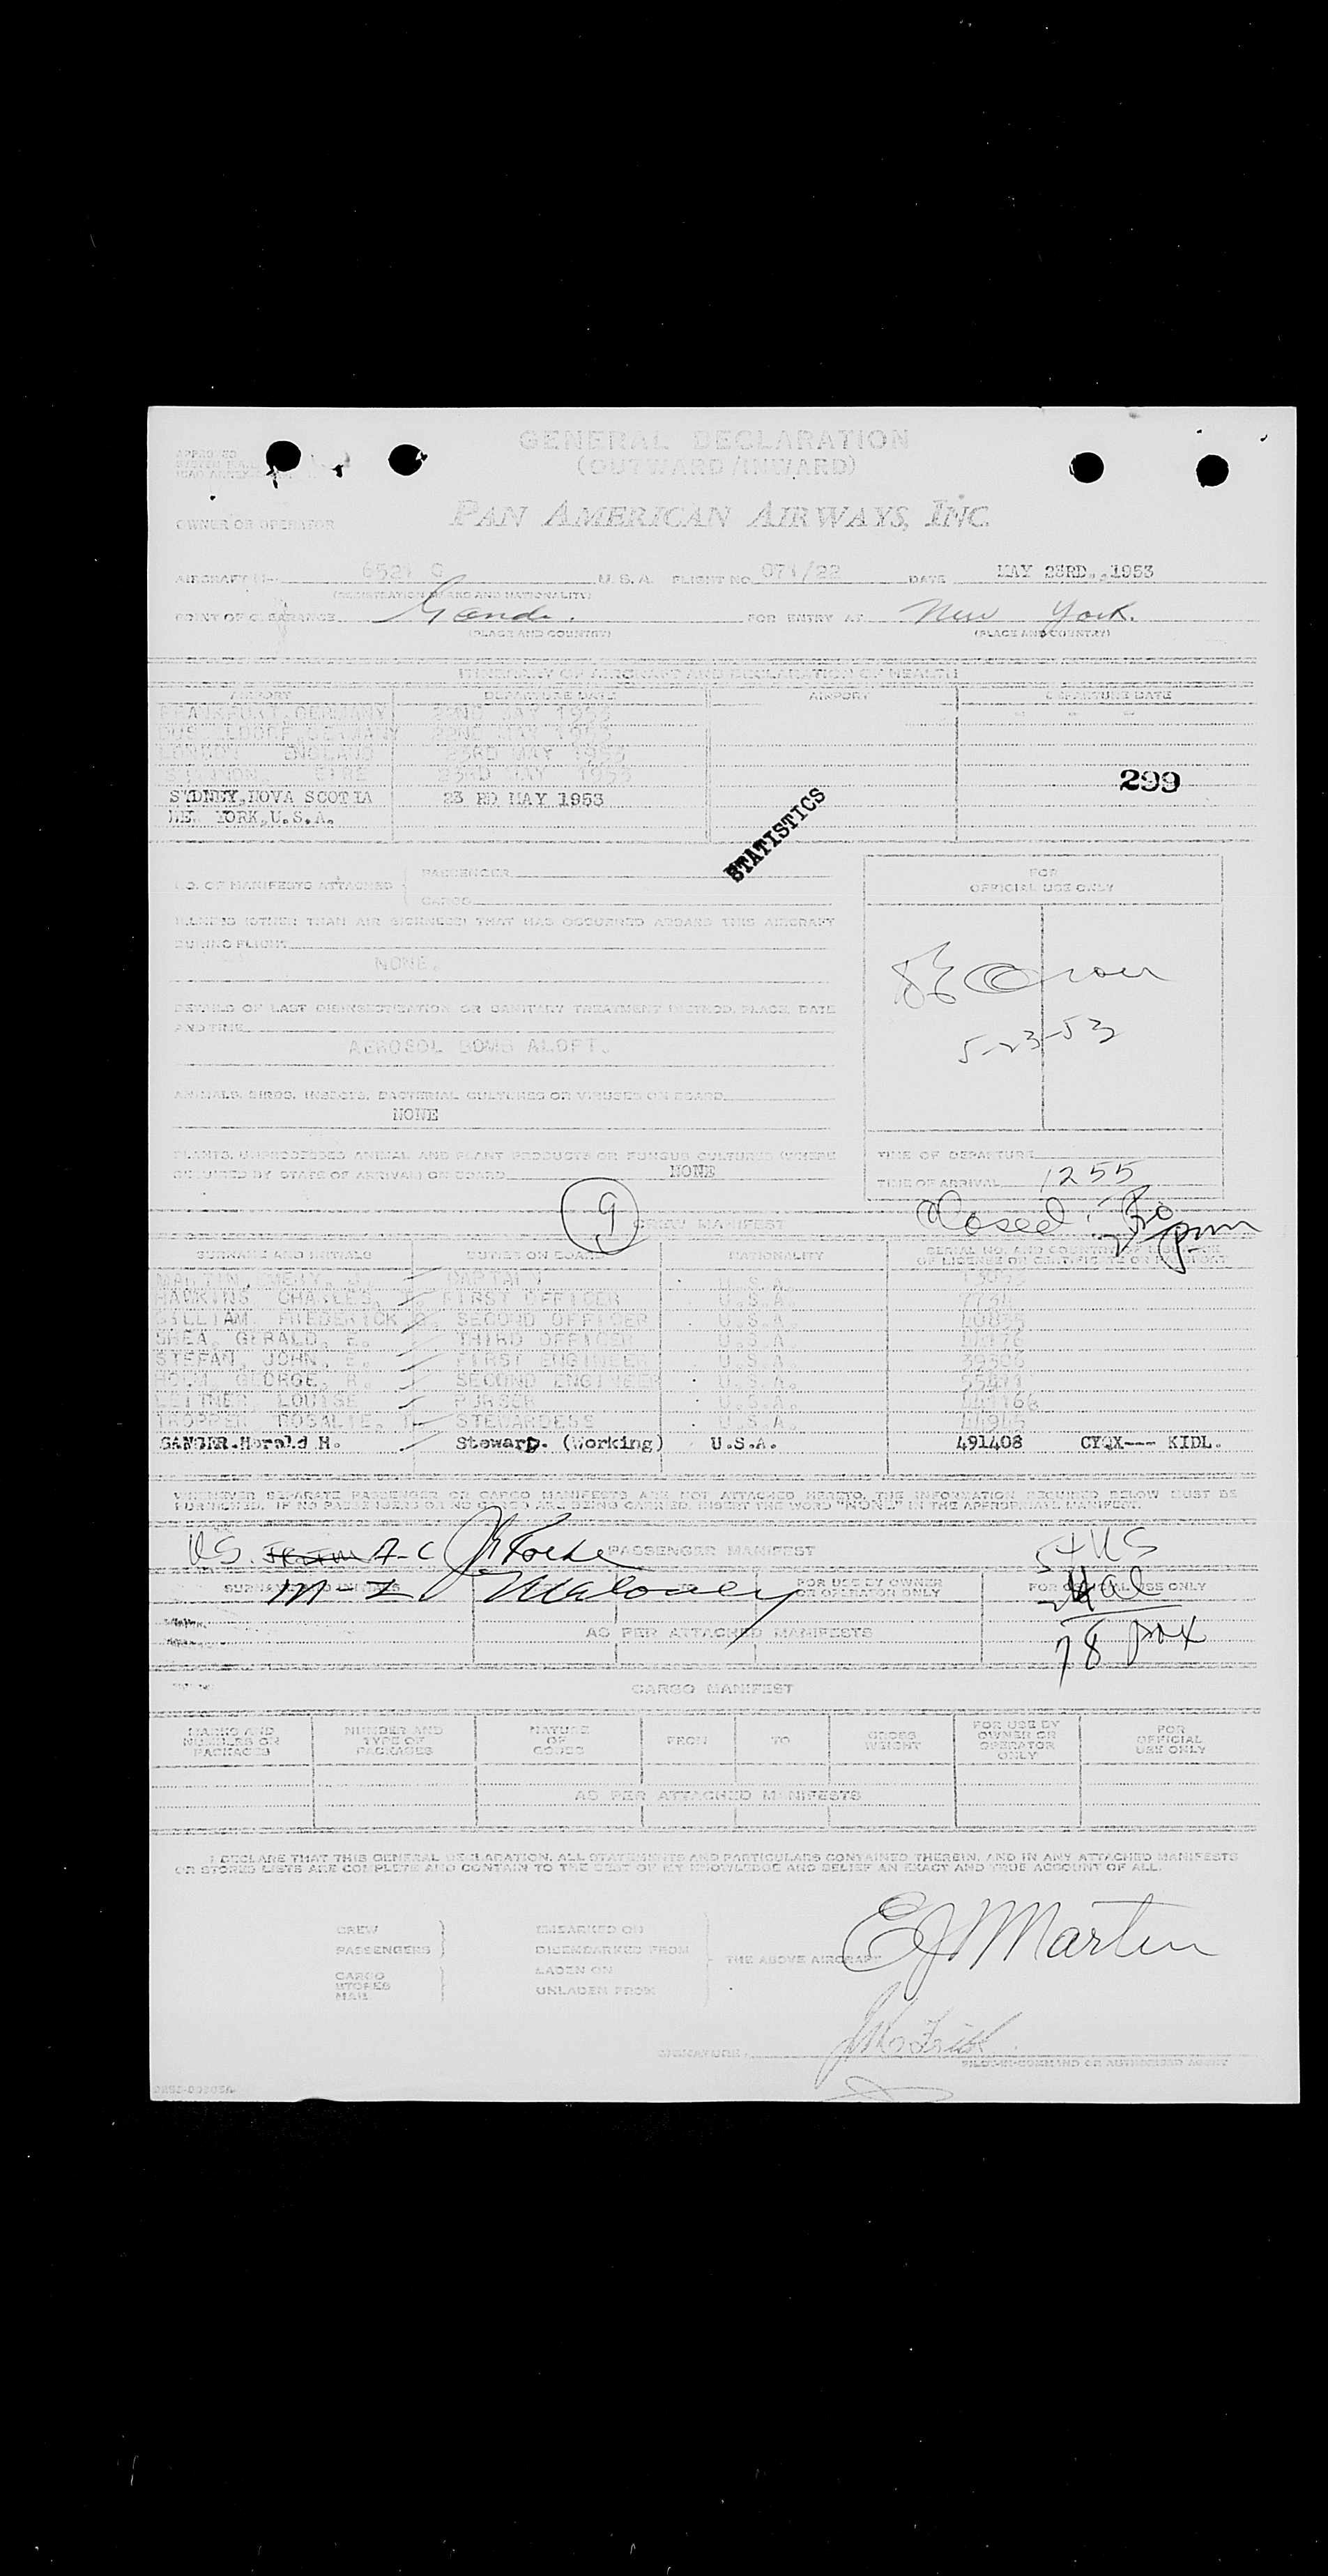 GENERAL DECLARATION
(OUTWARD/INWARD)
OWNER OR OPERATOR PAN AMERICAN AIRWAYS, INC.
AIRCRAFT 6521 C U. S. A. FLIGHT NO. 071/22 DATE MAY 23RD., 1953
(REGISTRATION MARKS AND NATIONALITY)
POINT OF CLEARANCE Gander FOR ENTRY AT New York.
(PLACE AND COUNTRY) (PLACE AND COUNTRY)
ITINERARY OF AIRCRAFT AND DECLARATION OF HEALTH
AIRPORT DEPARTURE DATE AIRPORT DEPARTURE DATE
FRANKFURT, GERMANY 22ND MAY 1953
GERMANY 22ND MAY 1953
LONDON ENGLAND 23RD MAY 1953
SHANNON, EIRE 23RD MAY 1953
299
SYDNEY, NOVA SCOTIA 23 RD MAY 1953
NEW YORK, U.S.A.
STATISTICS
NO. OF MANIFESTS ATTACHED PASSENGER
CARGO
FOR
OFFICIAL USE ONLY
ILLNESS (OTHER THAN AIR SICKNESS) THAT HAS OCCURRED ABOARD THIS AIRCRAFT
DURING FLIGHT
NONE.
DETAILS OF LAST DISINSECTIZATION OR SANITARY TREATMENT (METHOD, PLACE, DATE
AND TIME
AEROSOL BOMB ALOFT.
5-23-53
ANIMALS, BIRDS, INSECTS, BACTERIAL CULTURES OR VIRUSES ON BOARD
NONE
PLANTS, UNPROCESSED ANIMAL AND PLANT PRODUCTS OR FUNGUS CULTURES (WHERE
REQUIRED BY STATE OF ARRIVAL) ON BOARD NONE
TIME OF DEPARTURE
TIME OF ARRIVAL 1255
9 CREW MANIFEST Closed pm
SURNAME AND INITIALS DUTIES ON BOARD NATIONALITY SERIAL NO. AND COUNTRY OF
OF LICENSE OR CERTIFICATE OR PASSPORT
MARTIN, EMERY, J. CAPTAIN U.S.A.
HAWKINS, CHARLES, FIRST OFFICER U.S.A.
GILLIAM, FREDERICK SECOND OFFICER U.S.A.
SHEA, GERALD, E. THIRD OFFICER U.S.A.
STEFAN, JOHN, E. FIRST ENGINEER U.S.A.
GEORGE, SECOND ENGINEER U.S.A.
LEITNER, LOUISE PURSER U.S.A.
TROPPER ROSALIE, STEWARDESS U.S.A.
SANGER.Herald H. Steward. (Working) U.S.A. 491408 CYQX--- KIDL.
WHENEVER SEPARATE PASSENGER OR CARGO MANIFESTS ARE NOT ATTACHED HERETO, THE INFORMATION REQUIRED BELOW MUST BE
FURNISHED. IF NO PASSENGERS OR NO CARGO ARE BEING CARRIED, INSERT THE WORD "NONE" IN THE APPROPRIATE MANIFEST.
U.S. A-L
PASSENGER MANIFEST 54 US
M-Z Maloney
SURNAME AND INITIALS FOR USE BY OWNER
OR OPERATOR ONLY FOR OFFICIAL USE ONLY
24 al
AS PER ATTACHED MANIFESTS
78 pax
CARGO MANIFEST
MARKS AND
NUMBERS ON
PACKAGES NUMBER AND
TYPE OF
PACKAGES NATURE
OF
GOODS FROM TO GROSS
WEIGHT FOR USE BY
OWNER OR
OPERATOR
ONLY FOR
OFFICIAL
USE ONLY
AS PER ATTACHED MANIFESTS
I DECLARE THAT THIS GENERAL DECLARATION, ALL STATEMENTS AND PARTICULARS CONTAINED THEREIN, AND IN ANY ATTACHED MANIFESTS
OR STORES LISTS ARE COMPLETE AND CONTAIN TO THE BEST OF MY KNOWLEDGE AND BELIEF AN EXACT AND TRUE ACCOUNT OF ALL.
CREW EMBARKED ON
PASSENGERS DISEMBARKED FROM THE ABOVE AIRCRAFT EJ Martin
CARGO LADEN ON
STORES
MAIL UNLADEN FROM
SIGNATURE
PILOT-IN-COMMAND OR AUTHORISED AGENT